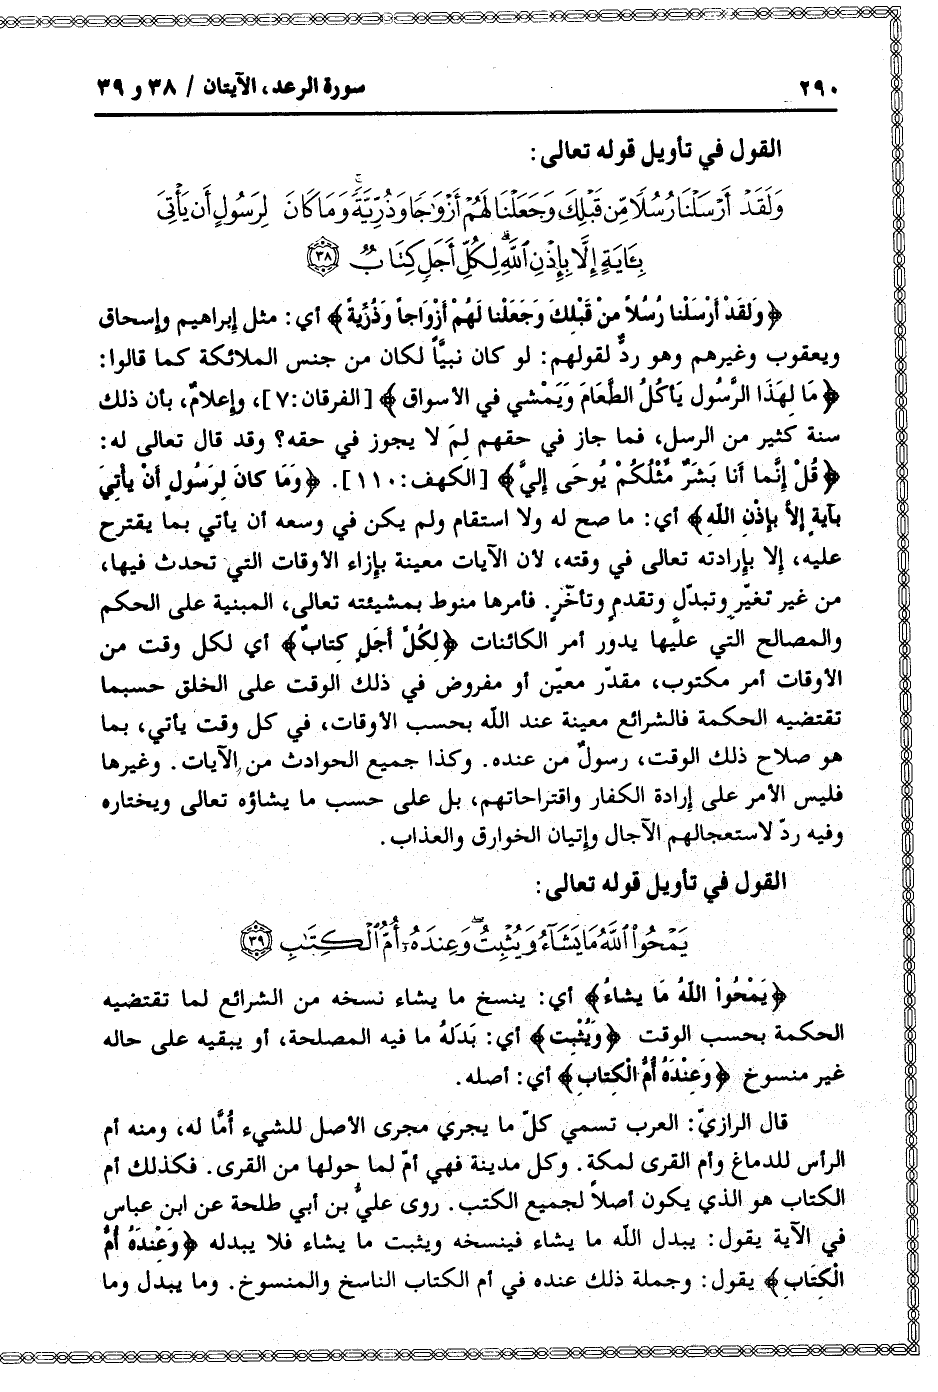 ٢٩٠ سورة الرعد، الآيتان / ٣٨ و ٣٩
القول في تأويل قوله تعالى:
وَلَقَدْ أَرْسَلْنَا رُسُلًا مِّن قَبْلِكَ وَجَعَلْنَا لَهُمْ أَزْوَٰجًا وَذُرِّيَّةً ۚ وَمَا كَانَ لِرَسُولٍ أَن يَأْتِىَ
بِـَٔايَةٍ إِلَّا بِإِذْنِ ٱللَّهِ ۗ لِكُلِّ أَجَلٍ كِتَابٌ ٣٨
﴿وَلَقَدْ أَرْسَلْنا رُسُلاً مِنْ قَبْلِكَ وَجَعَلْنا لَهُمْ أَزْوَاجاً وَذُرِّيَةً﴾ أي: مثل إبراهيم وإسحاق
ويعقوب وغيرهم وهو ردٌّ لقولهم: لو كان نبيًّا لكان من جنس الملائكة كما قالوا:
﴿مَا لِهَذَا الرَّسُول يَأكُلُ الطَّعَامَ وَيَمْشي في الأسواق﴾ [الفرقان:٧]، وإعلامٌ، بأن ذلك
سنة كثير من الرسل، فما جاز في حقهم لِمَ لا يجوز في حقه؟ وقد قال تعالى له:
﴿قُلْ إِنَّما أنا بَشَرٌ مِّثْلُكُمْ يُوحَى إليَّ﴾ [الكهف:١١٠]. ﴿وَمَا كانَ لِرَسُولٍ أنْ يأتِيَ
بآية إلاّ بإذْنِ اللَّهِ﴾ أي: ما صح له ولا استقام ولم يكن في وسعه أن يأتي بما يقترح
عليه، إلا بإرادته تعالى في وقته، لأن الآيات معينة بإزاء الأوقات التي تحدث فيها،
من غير تغيّرٍ وتبدّلٍ وتقدمٍ وتأخّرٍ. فأمرها منوط بمشيئته تعالى، المبنية على الحكم
والمصالح التي عليها يدور أمر الكائنات ﴿لِكُلِّ أجَلٍ كتابٌ﴾ أي لكل وقت من
الأوقات أمر مكتوب، مقدّر معيّن أو مفروض في ذلك الوقت على الخلق حسبما
تقتضيه الحكمة فالشرائع معينة عند اللّه بحسب الأوقات، في كل وقت يأتي، بما
هو صلاح ذلك الوقت، رسولٌ من عنده. وكذا جميع الحوادث من الآيات. وغيرها
فليس الأمر على إرادة الكفار واقتراحاتهم، بل على حسب ما يشاؤه تعالى ويختاره
وفيه ردّ لاستعجالهم الآجال وإتيان الخوارق والعذاب.
القول في تأويل قوله تعالى:
يَمْحُوا۟ ٱللَّهُ مَا يَشَآءُ وَيُثْبِتُ ۖ وَعِندَهُۥٓ أُمُّ ٱلْكِتَٰبِ ٣٩
﴿يَمْحُواْ اللَّهُ مَا يشاءُ﴾ أي: ينسخ ما يشاء نسخه من الشرائع لما تقتضيه
الحكمة بحسب الوقت ﴿وَيُثْبِت﴾ أي: بَدَلَهُ ما فيه المصلحة، أو يبقيه على حاله
غير منسوخ ﴿وَعِنْدَهُ أمُّ الْكِتَابِ﴾ أي: أصله.
قال الرازيّ: العرب تسمي كلّ ما يجري مجرى الأصل للشيء أُمَّا له، ومنه أم
الرأس للدماغ وأم القرى لمكة. وكل مدينة فهي أمّ لما حولها من القرى. فكذلك أم
الكتاب هو الذي يكون أصلاً لجميع الكتب. روى عليُّ بن أبي طلحة عن ابن عباس
في الآية يقول: يبدل اللّه ما يشاء فينسخه ويثبت ما يشاء فلا يبدله ﴿وَعِنْدَهُ أمُّ
الْكِتَابِ﴾ يقول: وجملة ذلك عنده في أم الكتاب الناسخ والمنسوخ. وما يبدل وما